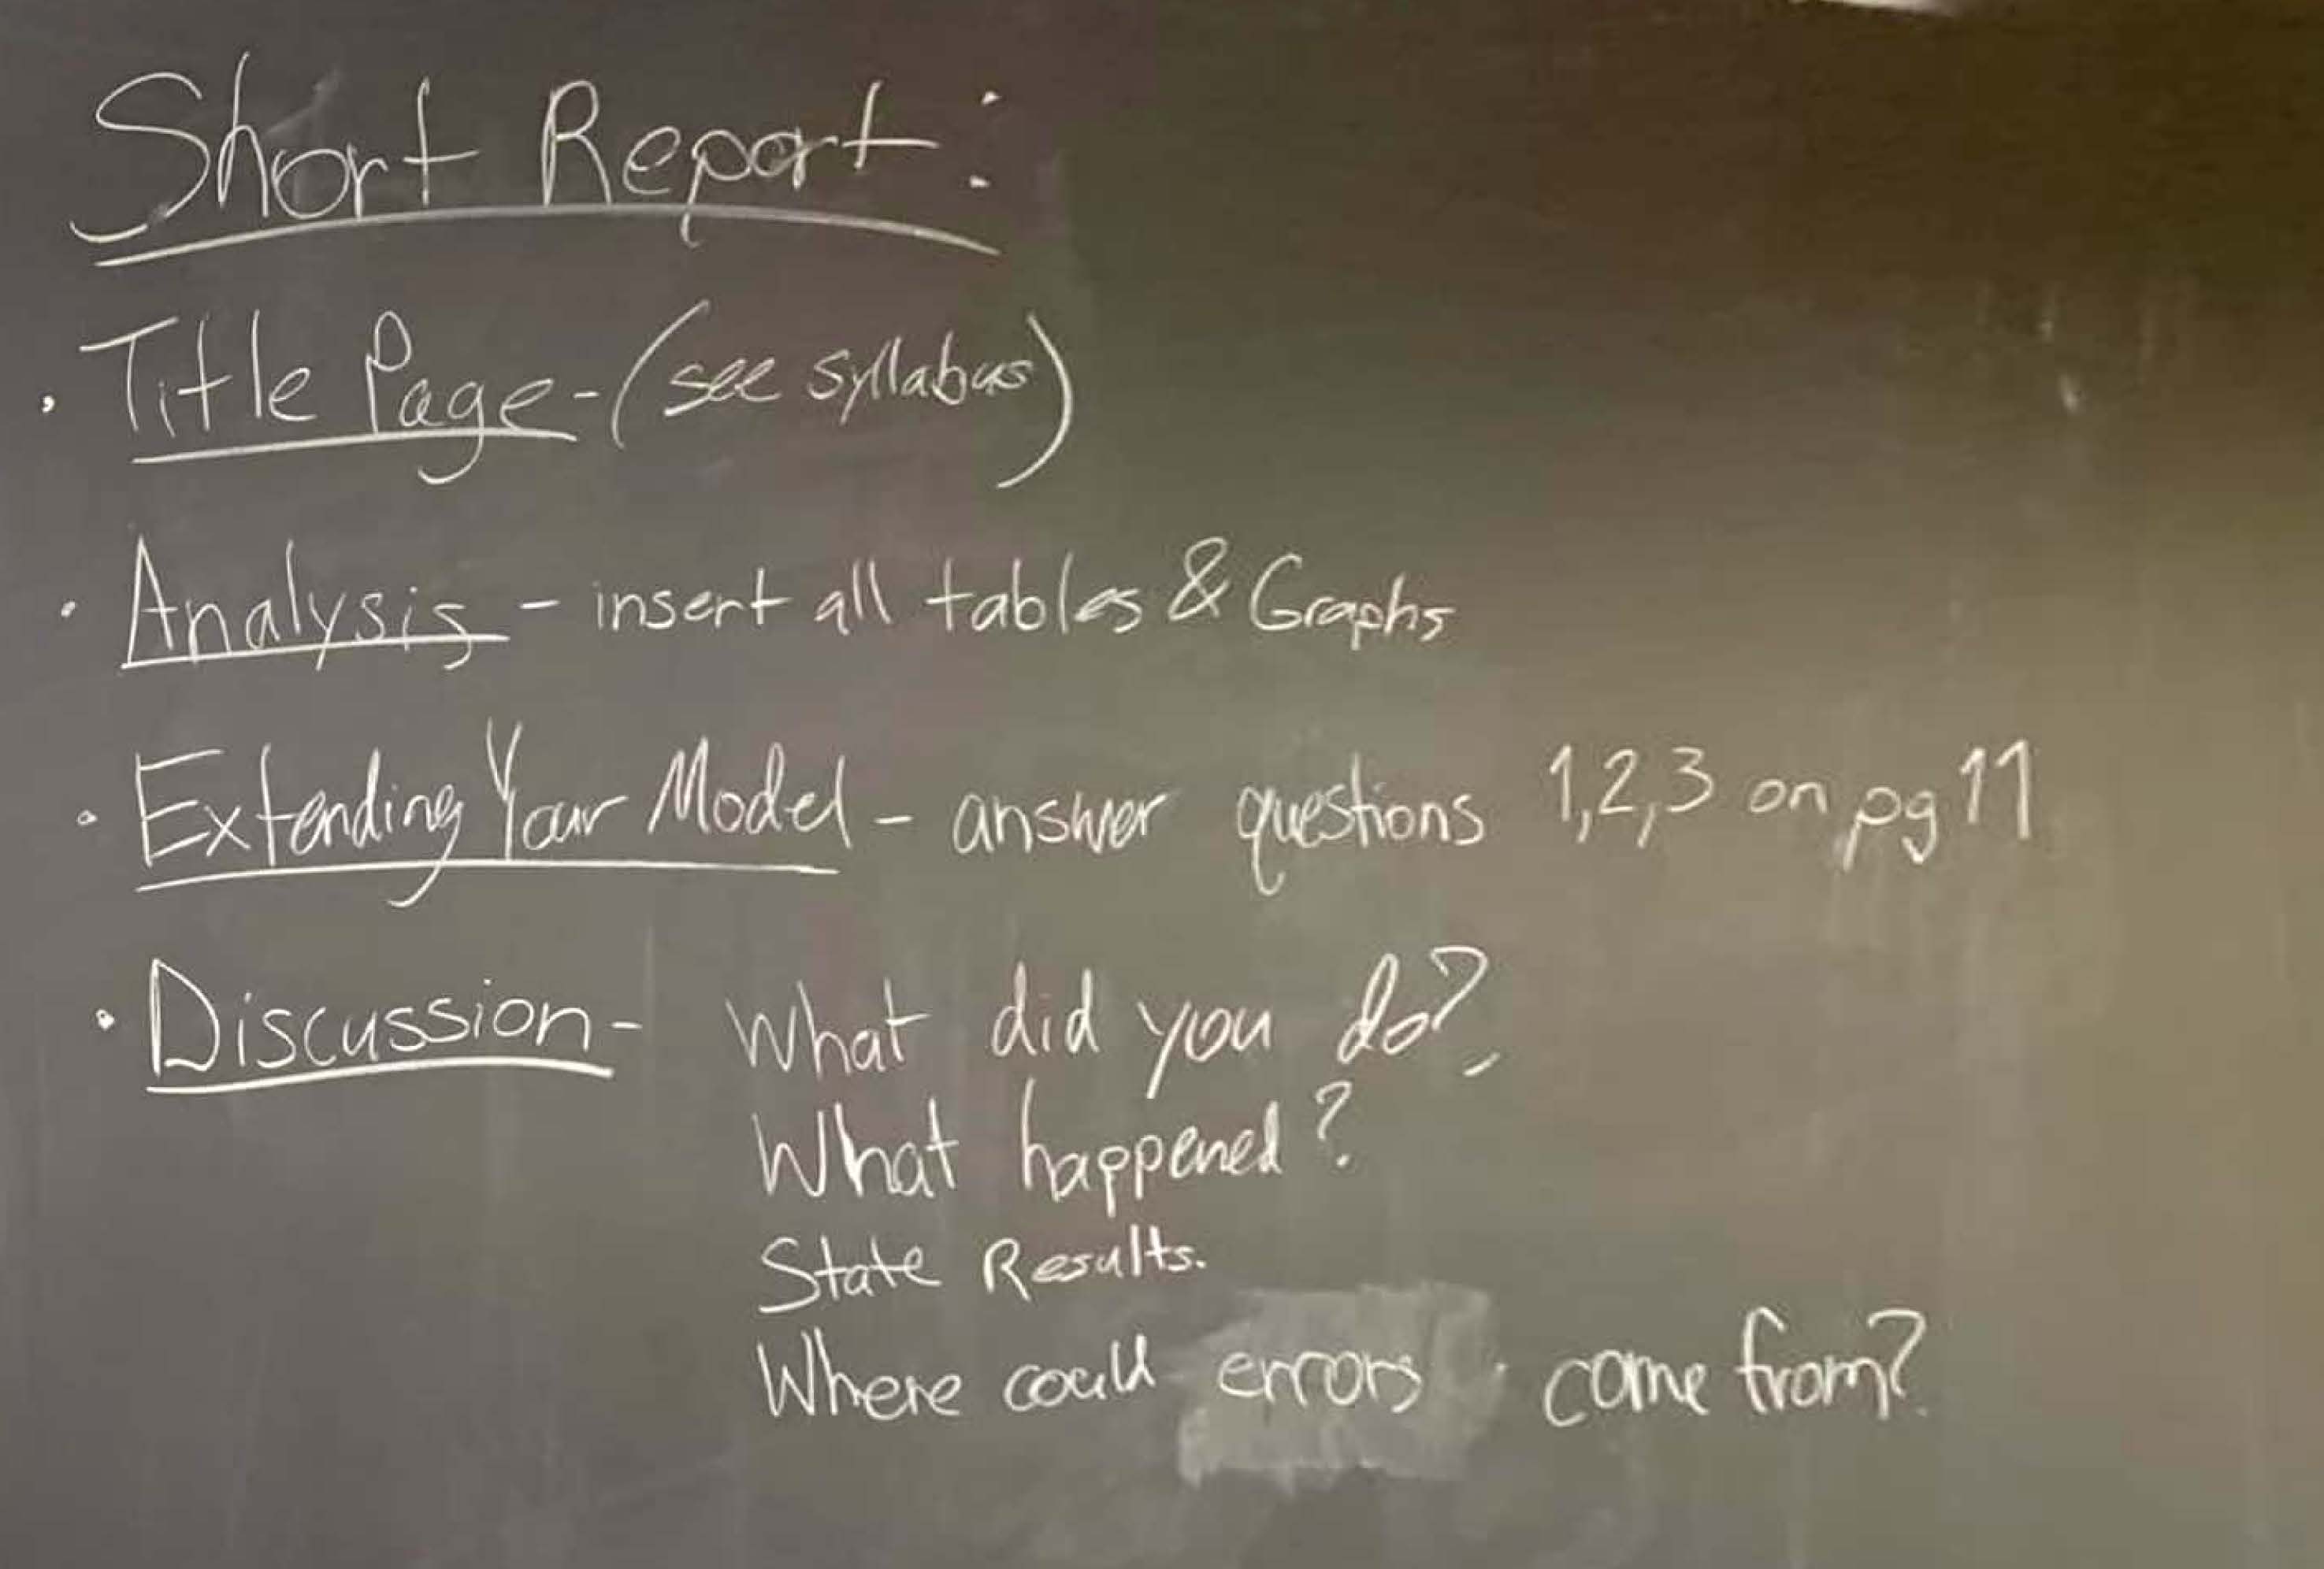 Short Report:
· Title Page - (see syllabus)
· Analysis - insert all tables & Graphs
· Extending Your Model - answer questions 1,2,3 on pg 11
· Discussion - What did you do?
What happened?
State Results.
Where could errors come from?